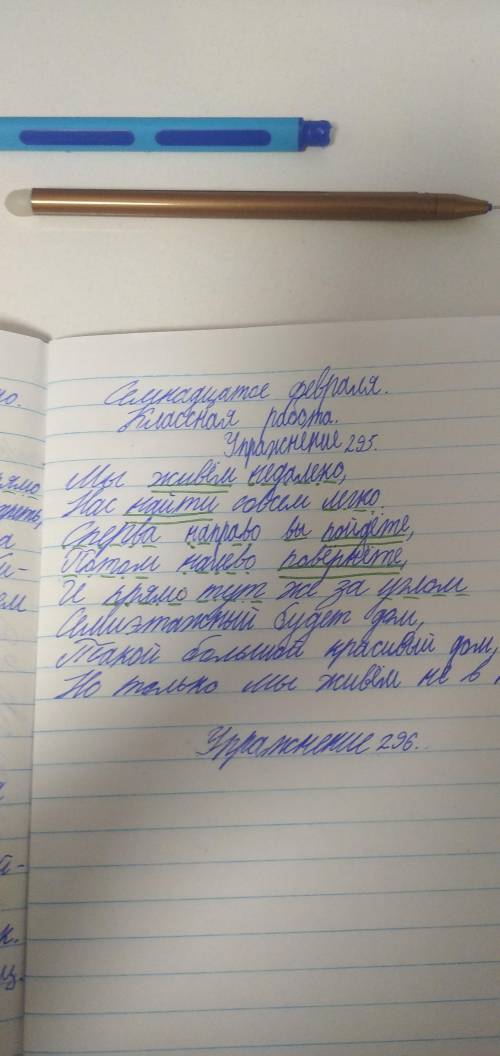 но.
Семнадцатое февраля.
Классная работа.
Упражнение 295.
Мы живём недалеко,
Нас найти совсем легко.
Сперва направо вы пойдёте,
Потом налево повернёте,
И прямо тут же за углом
Семиэтажный будет дом,
Такой большой красивый дом,
Но только мы живём не в
Упражнение 296.